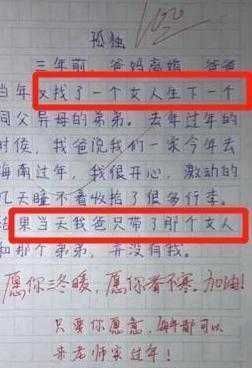 100
孤独
三年前,爸妈离婚,爸爸
当年又找了一个女人生下一个
同父异母的弟弟。去年过年的
时候,我爸说我们一家今年去
海南过年,我很开心,激动的
几天睡不着收拾了很多行李。
结果当天我爸只带了那个女人
和那个弟弟,并没有我。
愿你三冬暖,愿你春不寒,加油!
只要你愿意,每年都可以
来老师家过年!